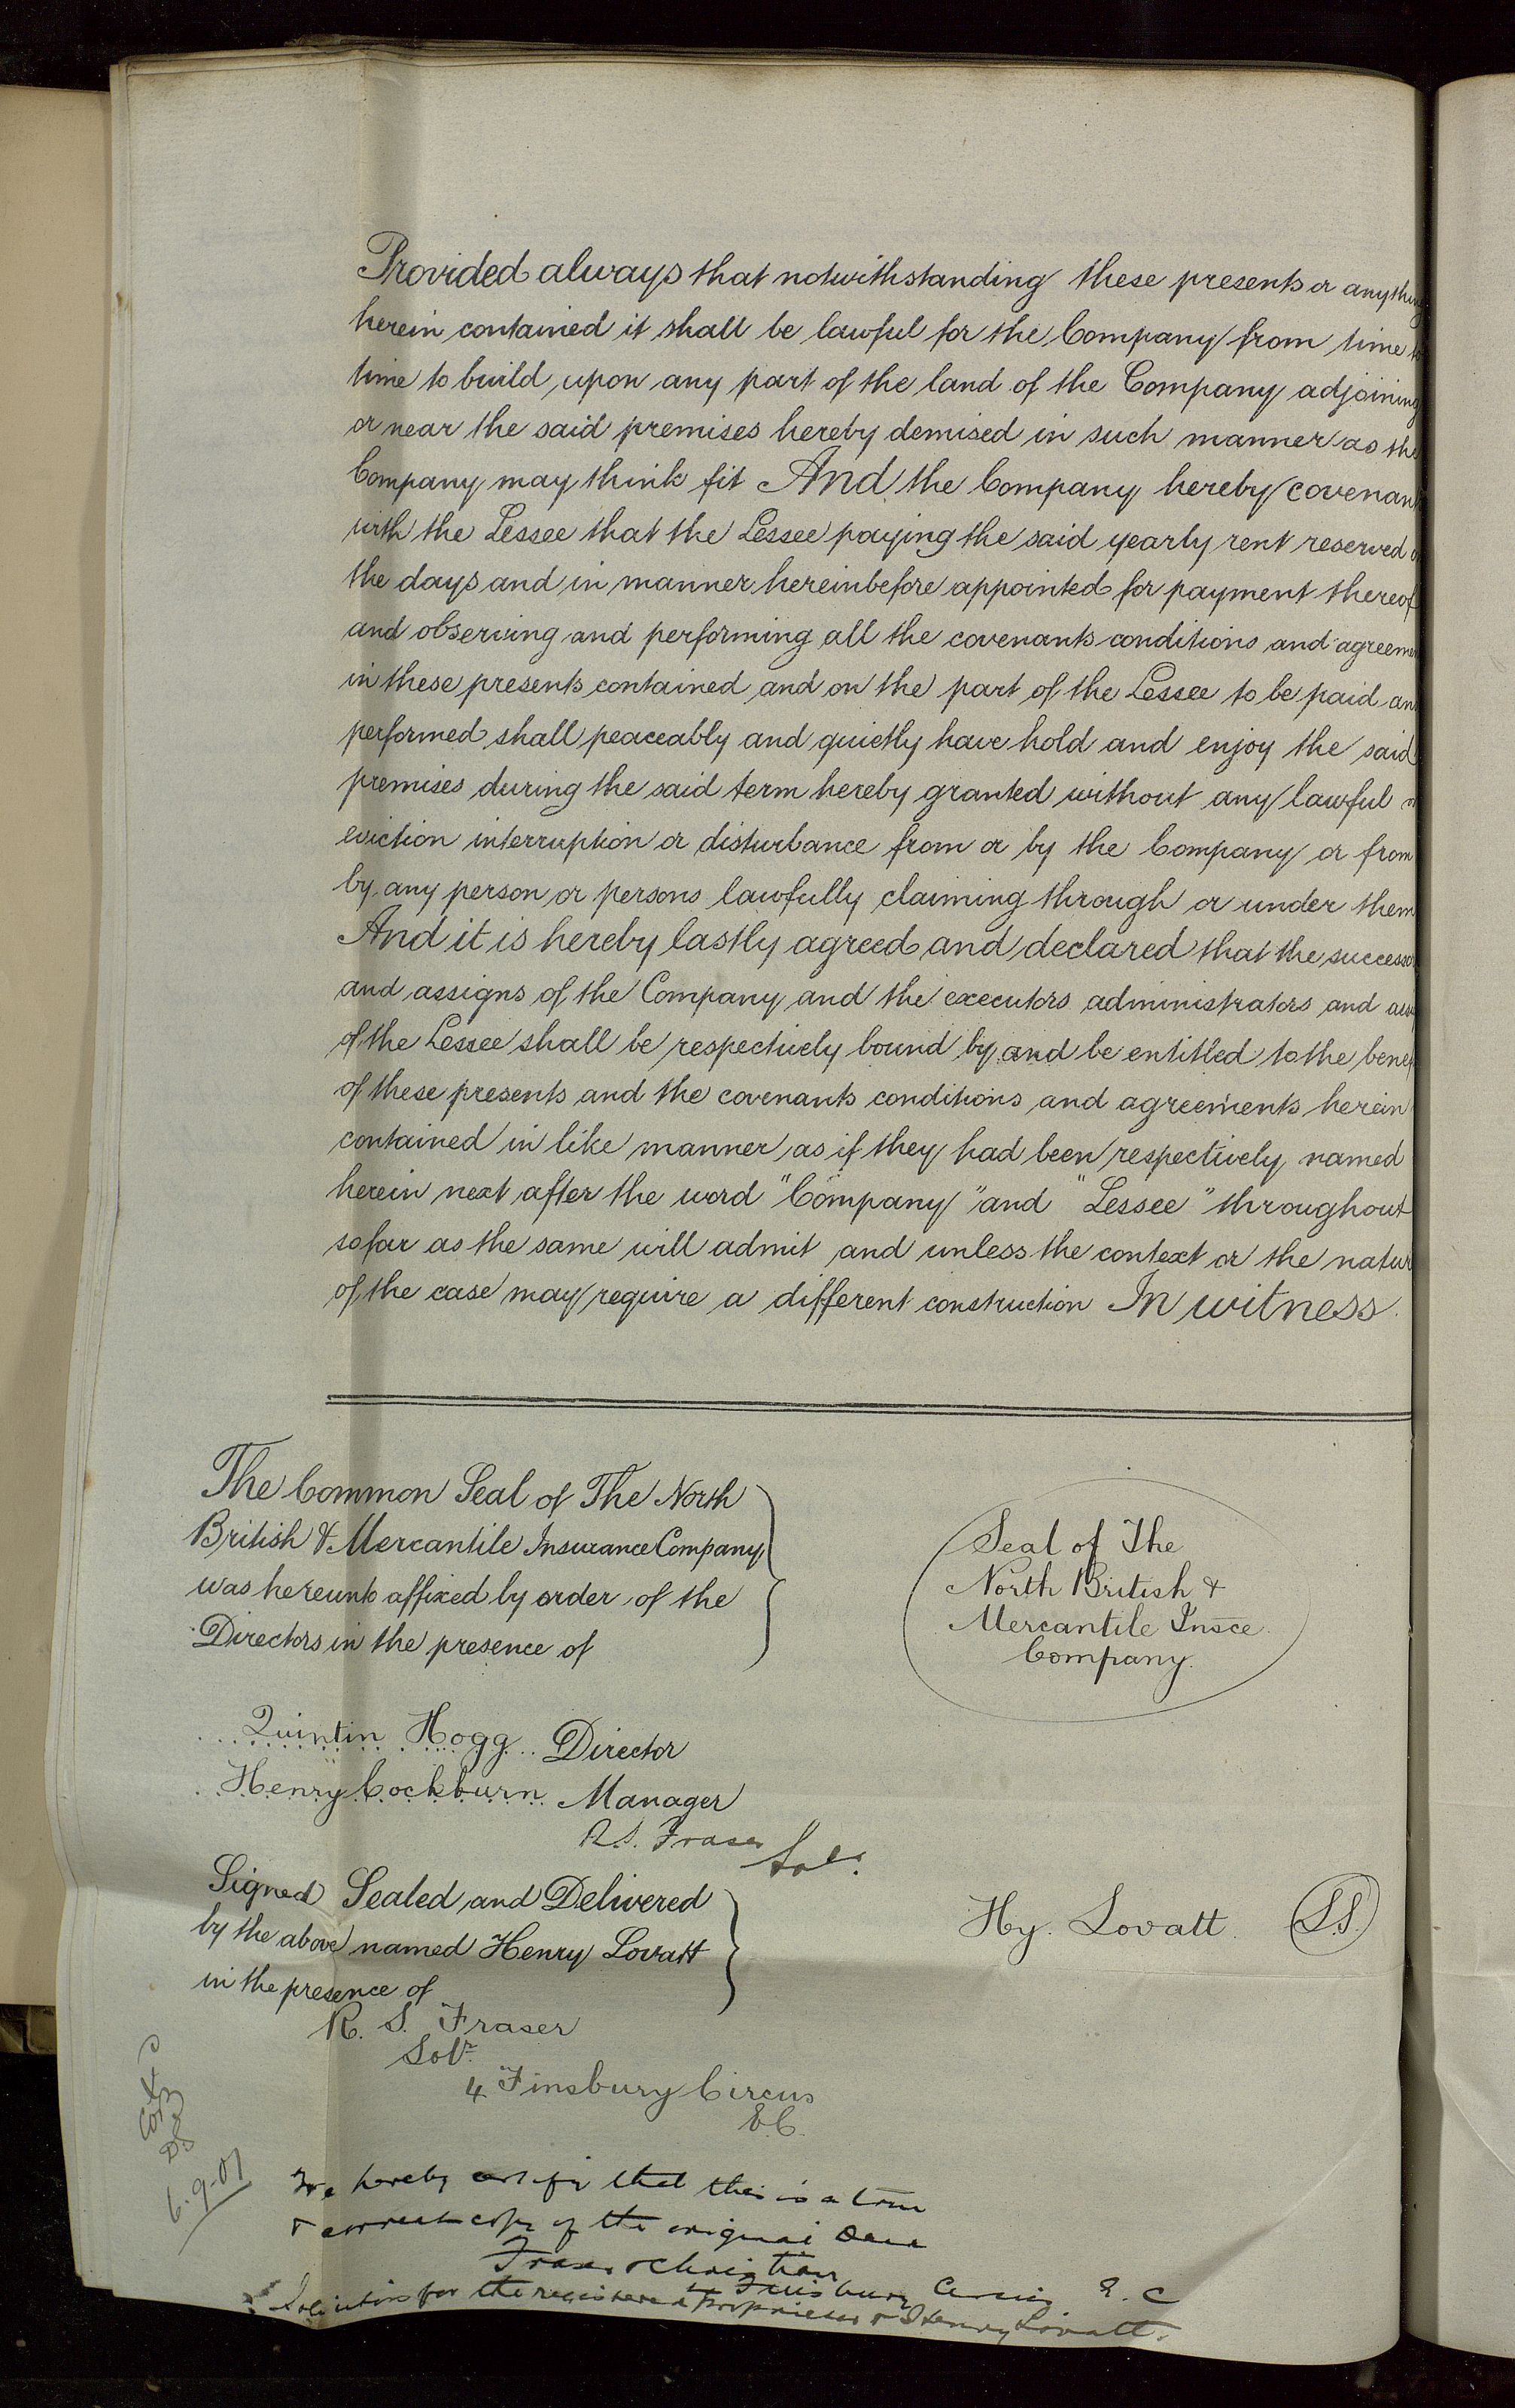 Provided always that notwithstanding these presents or anything
herein contained it shall be lawful for the Company from time to
time to build upon any part of the land of the Company adjoining
or near the said premises hereby demised in such manner as the
Company may think fit And the Company hereby covenant
with the Lessee that the Lessee paying the said yearly rent reserved on
the days and in manner hereinbefore appointed for payment thereof
and observing and performing all the covenants conditions and agreemen
in these presents contained and on the part of the Lessee to be paid and
performed shall peaceably and quietly have hold and enjoy the said
premises during the said term hereby granted without any lawful
eviction interruption or disturbance from or by the Company or from
by any person or persons lawfully claiming through or under them
And it is hereby lastly agreed and declared that the successors
and assigns of the Company and the executors administrators and
of the Lessee shall be respectively bound by and be entitled to the benef
of these presents and the covenants conditions and agreements herein
contained in like manner as if they had been respectively named
herein next after the word "Company" and "Lessee" throughout
so far as the same will admit and unless the context or the natur
of the case may require a different construction In witness
The Common Seal of The North
British & Mercantile Insurance Company
was hereunto affixed by order of the
Directors in the presence of
Seal of The
North British &
Mercantile Insce
Company.
Quintin Hogg Director
Henry Cockburn Manager
R.S. Fraser Solr.
Signed Sealed and Delivered
by the above named Henry Lovatt
in the presence of
Hy. Lovatt. L.S.
R. S. Fraser
Solr.
4. Finsbury Circus
E.C.
6.9.07
We hereby certify that this is a true
& correct copy of the original
Fraser & Christian
4 Finsbury Circus E.C
Solicitors for the registered Proprietor & Henry Lovatt.